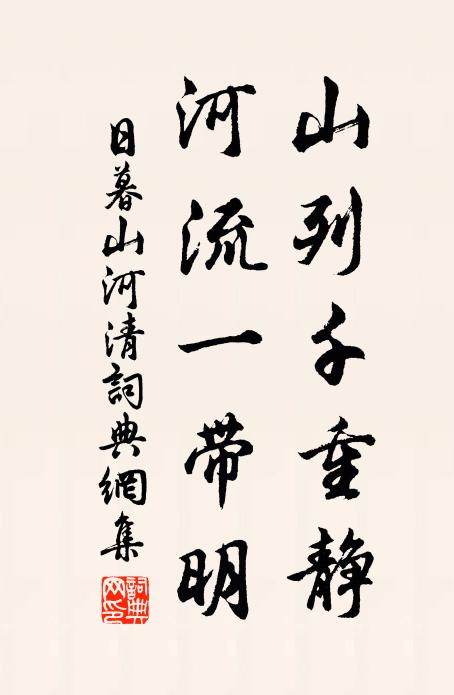 山列千重静
河流一带明
日暮山河清詞典網集
詞典
网印